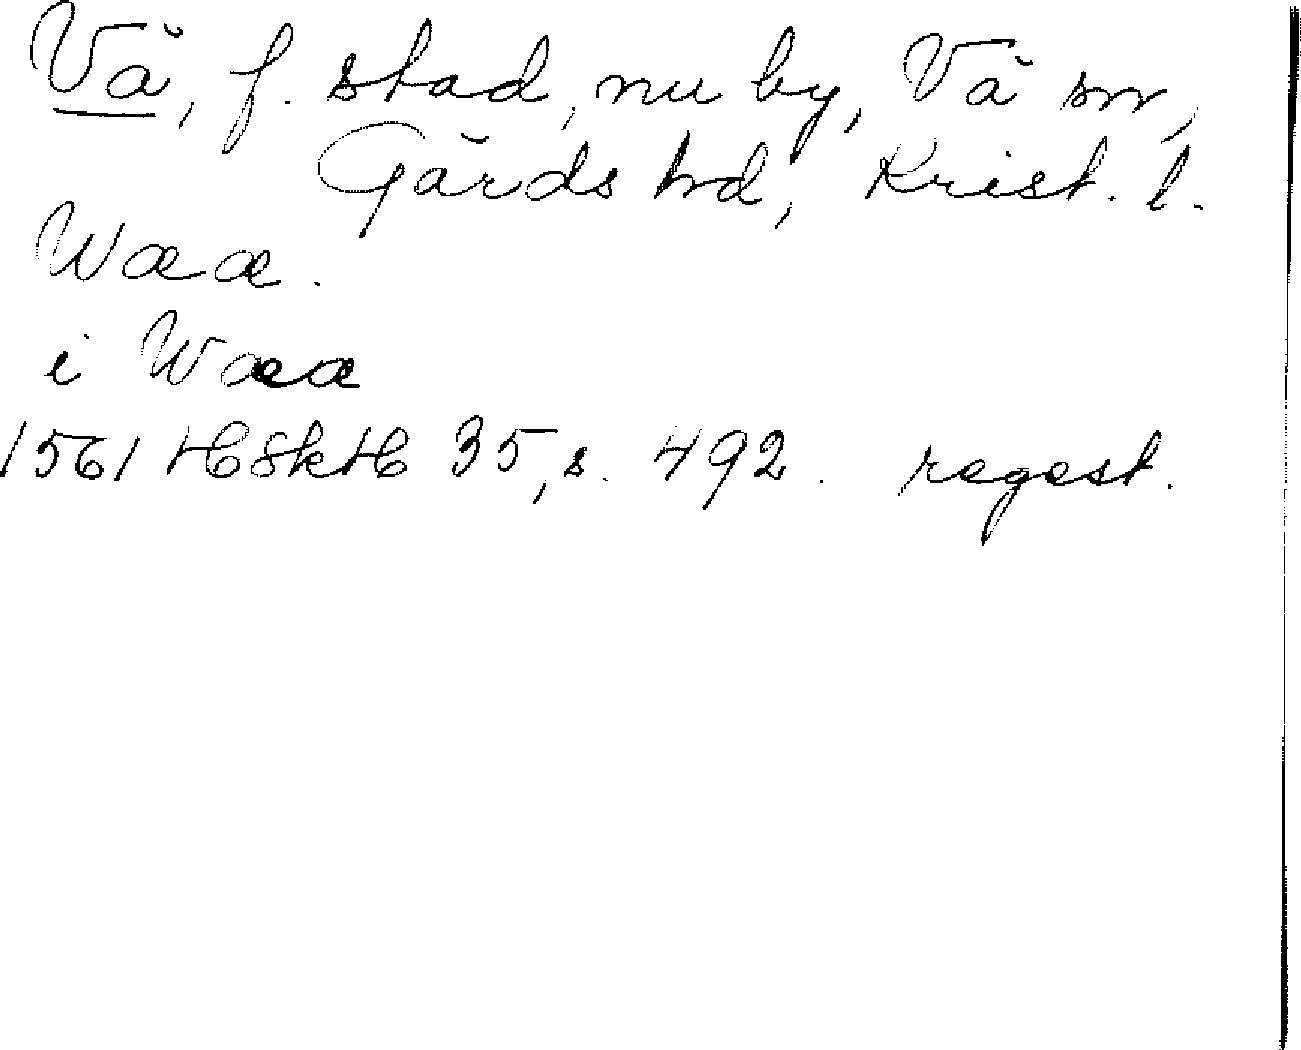 Vä, f. stad, nu by, Vä sn,
Gärds hd, Krist. l.
Wææ.
i Wææ
1561 HSkH 35, s. 492. regest.